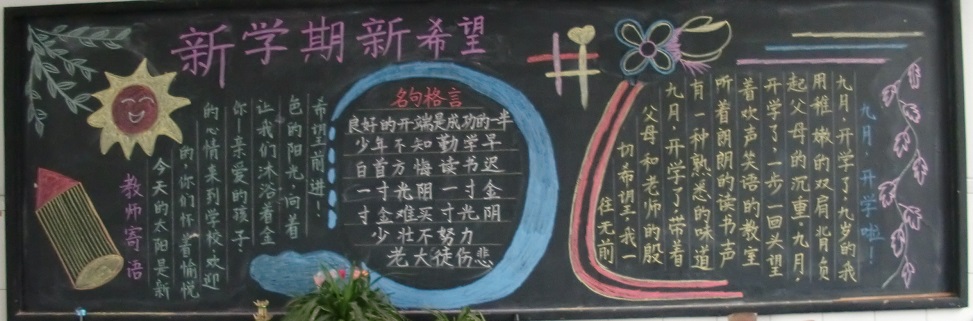 新学期新希望
教师寄语
今天的太阳是新
的,你们怀着愉悦
的心情来到学校,欢迎
你!亲爱的孩子.
让我们沐浴着金
色的阳光,向着
希望前进!
名句格言
良好的开端是成功的一半
少年不知勤学早
日首方悔读书迟
一寸光阴一寸金
寸金难买寸光阴
少壮不努力
老大徒伤悲
九月,开学啦!
九月,开学了,九岁的我
用稚嫩的双肩,背负
起父母的沉重,九月,
开学了,一步一回头望
着欢声笑语的教室
听着朗朗的读书声
有一种熟悉的味道
九月,开学了,带着
父母和老师的殷
切希望,我一
往无前